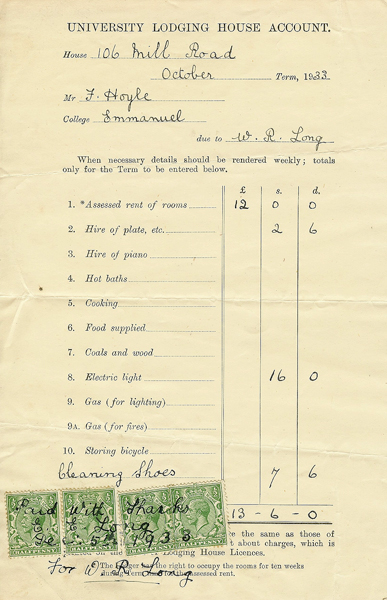 UNIVERSITY LODGING HOUSE ACCOUNT.
House 106 Mill Road
October Term, 1933
Mr F. Hoyle
College Emmanuel
due to W. R. Long
When necessary details should be rendered weekly; totals
only for the Term to be entered below.
£ s. d.
1. *Assessed rent of rooms 12 0 0
2. Hire of plate, etc. 2 6
3. Hire of piano
4. Hot baths
5. Cooking
6. Food supplied
7. Coals and wood
8. Electric light 16 0
9. Gas (for lighting)
9A. Gas (for fires)
10. Storing bicycle
Cleaning Shoes 7 6
13-6-0
Paid With Thanks
E. E. Long
Dec 5th 1933
For W. R. Long
HALFPENNY
the same as those of
about charges, which is
printed on the Lodging House Licences.
The lodger has the right to occupy the rooms for ten weeks
during Term for the assessed rent.